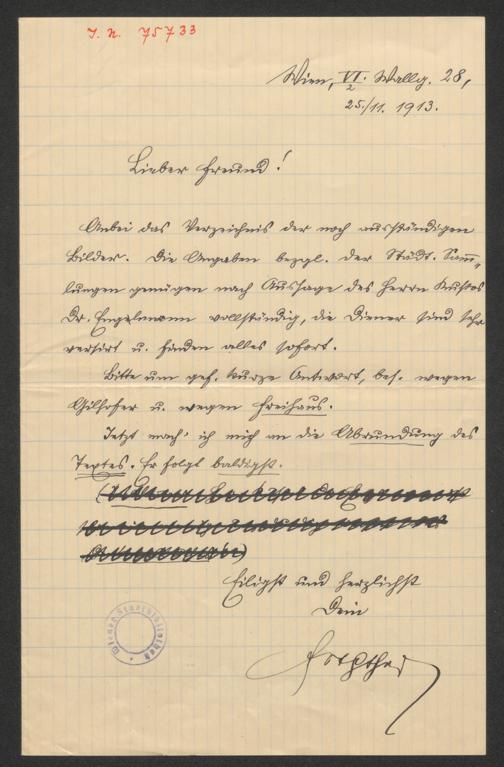 I. N. 75733
Wien, VI/2. Wallg. 28,
25./11. 1913.
Lieber Freund!
Anbei das Verzeichnis der noch ausständigen
Bilder. Die Angaben bezgl. der Städt. Samm-
lungen genügen nach Aussage des Herrn Kustos
Dr. Engelmann vollständig, die Diener sind sehr
versirt u. finden alles sofort.
Bitte um gef. kurze Antwort, bes. wegen
Gilhofer u. wegen Freihaus.
Jetzt mach' ich mich an die Abrundung des
Textes. Er folgt baldigst.
Eiligst und herzlichst
Dein
Wiener Stadtbibliothek